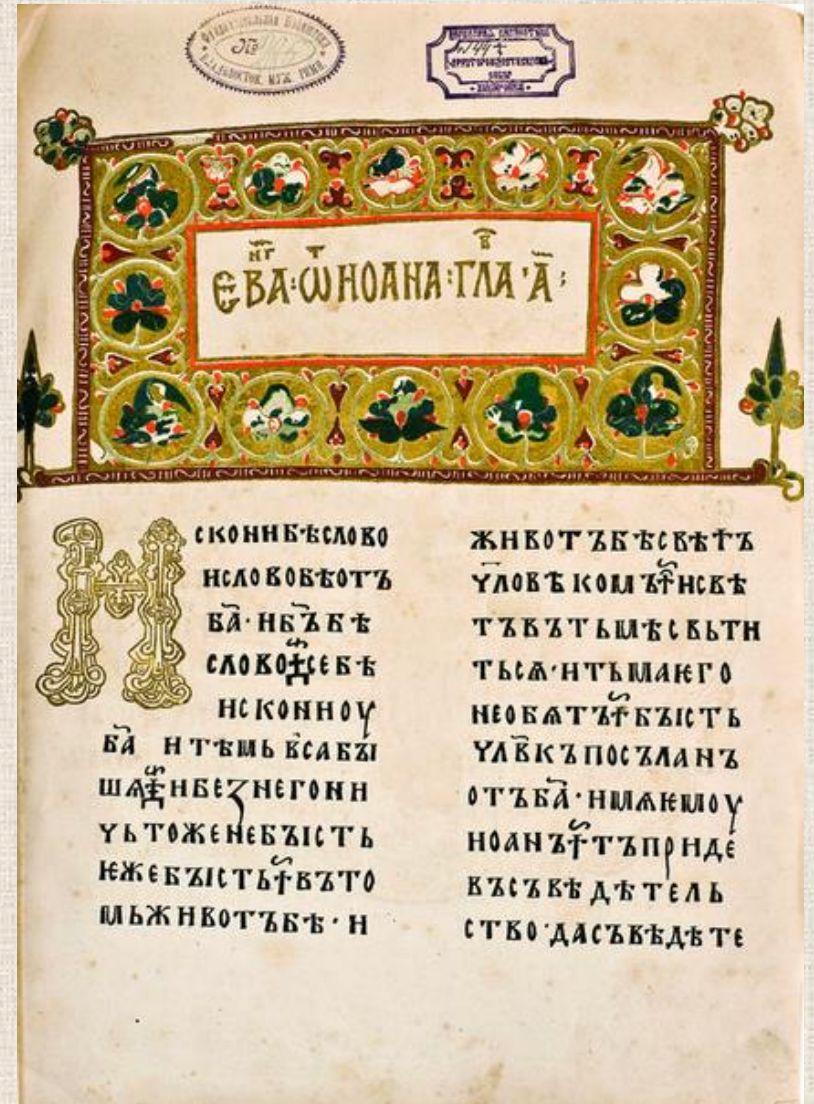 №
ВЛАДИВОСТОК. МУЖ. ГИМН.
ЄВⷩ҇ⷢА:Ѿⷮ ИОАНА:ГЛⷡ҇А·А҃:
ИСКОНИБѢСЛОВО
ИСЛОВОБѢОТЪ
БА҃·ИБЪ҃БѢ
СЛОВО·СЕБѢ
ИСКОНИОУ
БА҃ ИТѢМЬВЬСАБЫ
ШѦ·ИБЕꙀНЕГОНИ
ЧЬТОЖЕНЕБЪІСТЬ
ѤЖЕБЪІСТЬ·ВЪТО
МЬЖИВОТЪБѢ·И
ЖИВОТЪБѢСВѢТЪ
Ч҃ЛОВѢКОМЪ·ИСВѢ
ТЪВЪТЬМѢСВЬТИ
ТЬСѦ·ИТЬМАѤГО
НЕОБѦТЪ·БЪІСТЬ
ЧЛВ҃КЪПОСЪЛАНЪ
ОТЪБА҃·ИМѦѤМОУ
ИОАНЪ·ТЪПРИДЕ
ВЪСЪВѢДѢТЕЛЬ
СТВО·ДАСЪВѢДѢТЕ